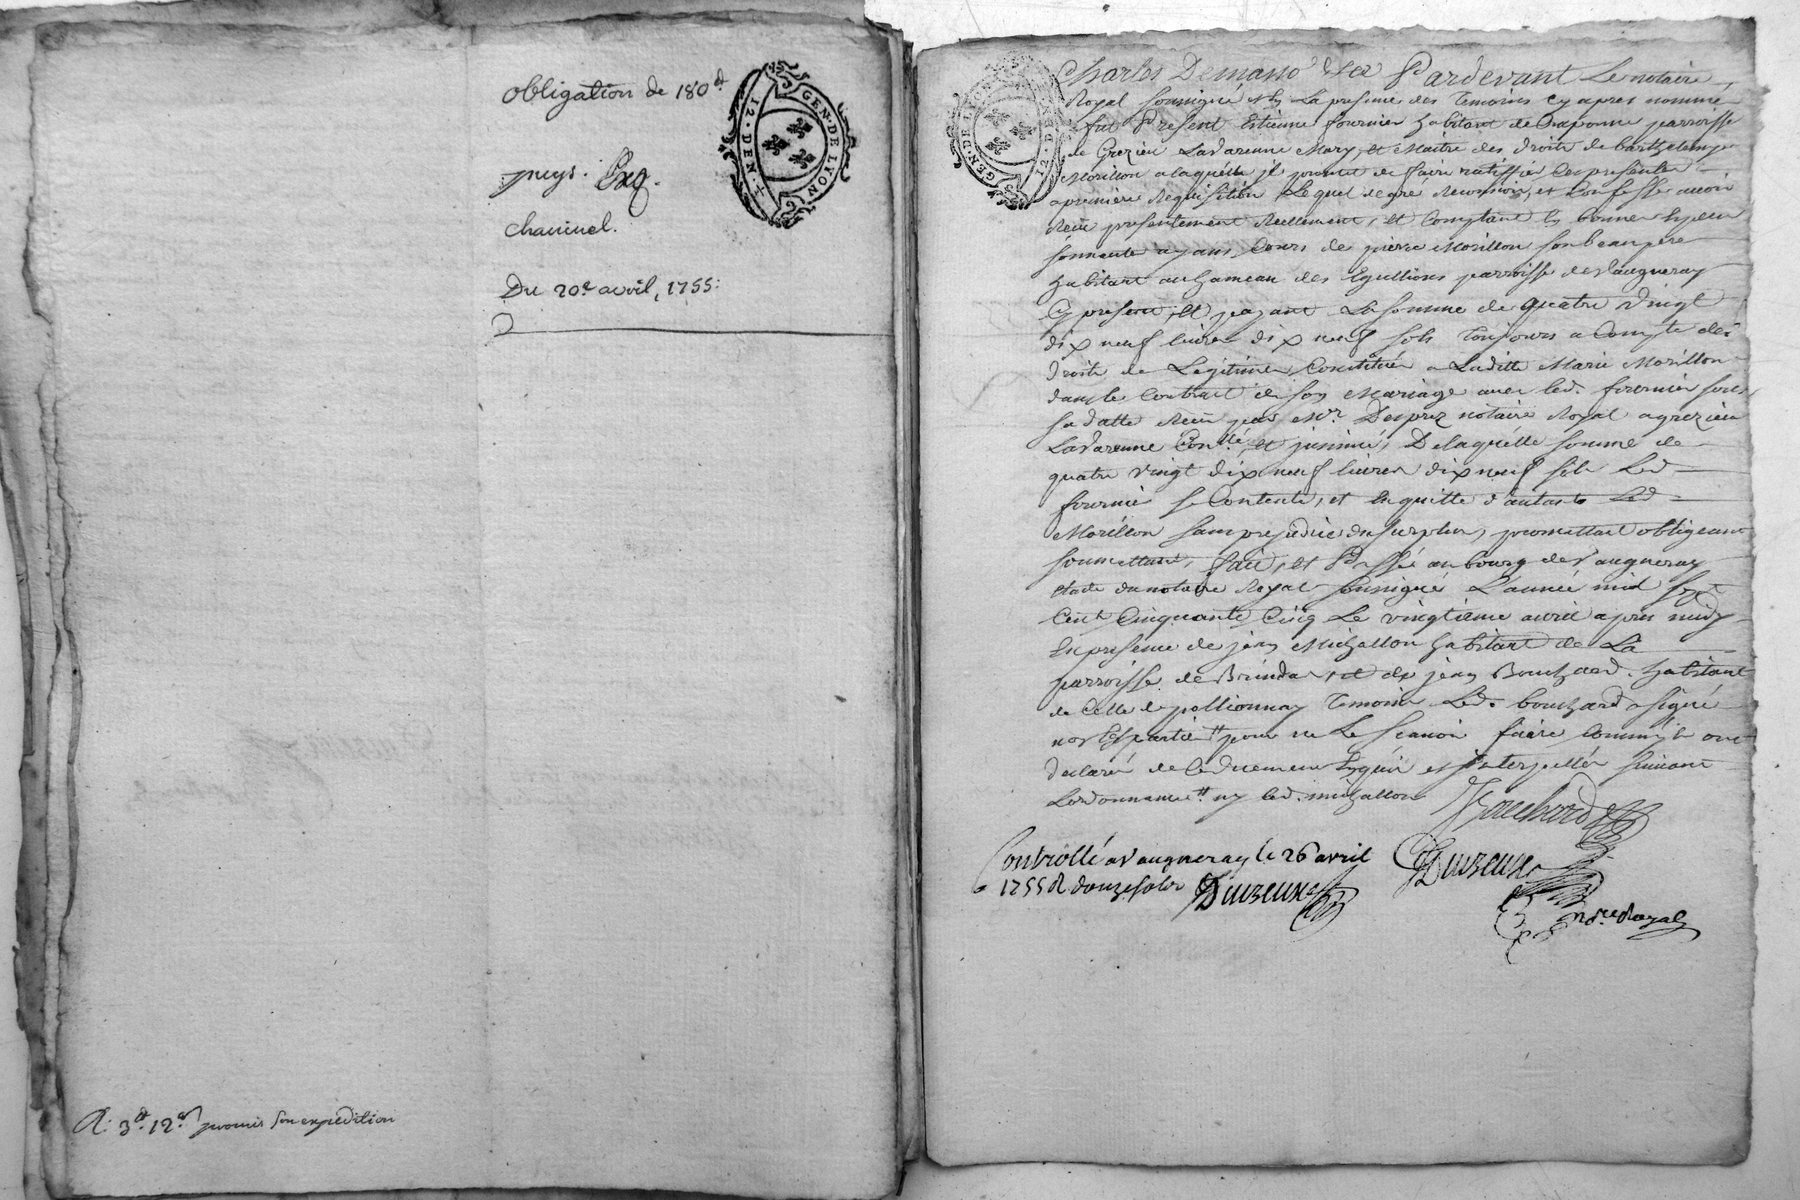 obligation de 180ᵗᵗ
puys.
chavinel.
Du 20ᵉ avril, 1755:
GEN·DE LYON
12·DEN·
R: 3ᵗᵗ 12ˢ pour son expedition
GEN·DE LYON
12·D
Pardevant Le notaire
Royal soussigné & En La presence des Temoins Cy apres nommés
fut Present Estienne fournier habitant de Craponne parroisse
de Grezieu Lavarenne Mary, et Maitre des droits de
Morillon a laquelle il promet de faire ratiffier Ces presentes
a premiere Requisition Lequel de gré Reconnoit, et Confesse avoir
Reçu presentement Reellement, et Comptant En bonnes Especes
sonnante ayans Cours de pierre Morillon son beau pere
habitant au hameau des Eguillions parroisse de Vaugneray
Cy present, et payant La somme de quatre Vingt
dix neuf livres dix neuf sols Toujours a Compte des
droits de Legitimes Constitués a Laditte Marie Morillon
dans le Contrat de son Mariage avec led. fournier sous
sa datte Reçu par Mʳ Desprez notaire Royal a grezieu
Lavarenne Conˡˡᵉ, et jnsinué, De laquelle somme de
quatre Vingt dix neuf livres dix neuf sols Led
fournier se Contente, et En quitte d'autant Led
Morillon sans prejudice du surplus, promettant obligeant
soumettant, fait, et Passé au bourg de Vaugneray
Etude du notaire Royal soussigné L'année mil sept
Cent Cinquante Cinq Le vingtieme avril apres midy
En presence de jean Michallon habitant de La
parroisse de Brindas et de jean Bouchard habitant
de Celle de pollionnay Temoins Led. bouchard a signé
non les parties pour ne Le sçavoir faire Comm'ils ont
declaré de Ce duement Enquis et jnterpellés suivant
Lordonnance ny led. michallon
Bouchard
Controllé a Vaugneray le 26 avril
1755 R douze sols Duvzeux
Duvzeux
nore Royal